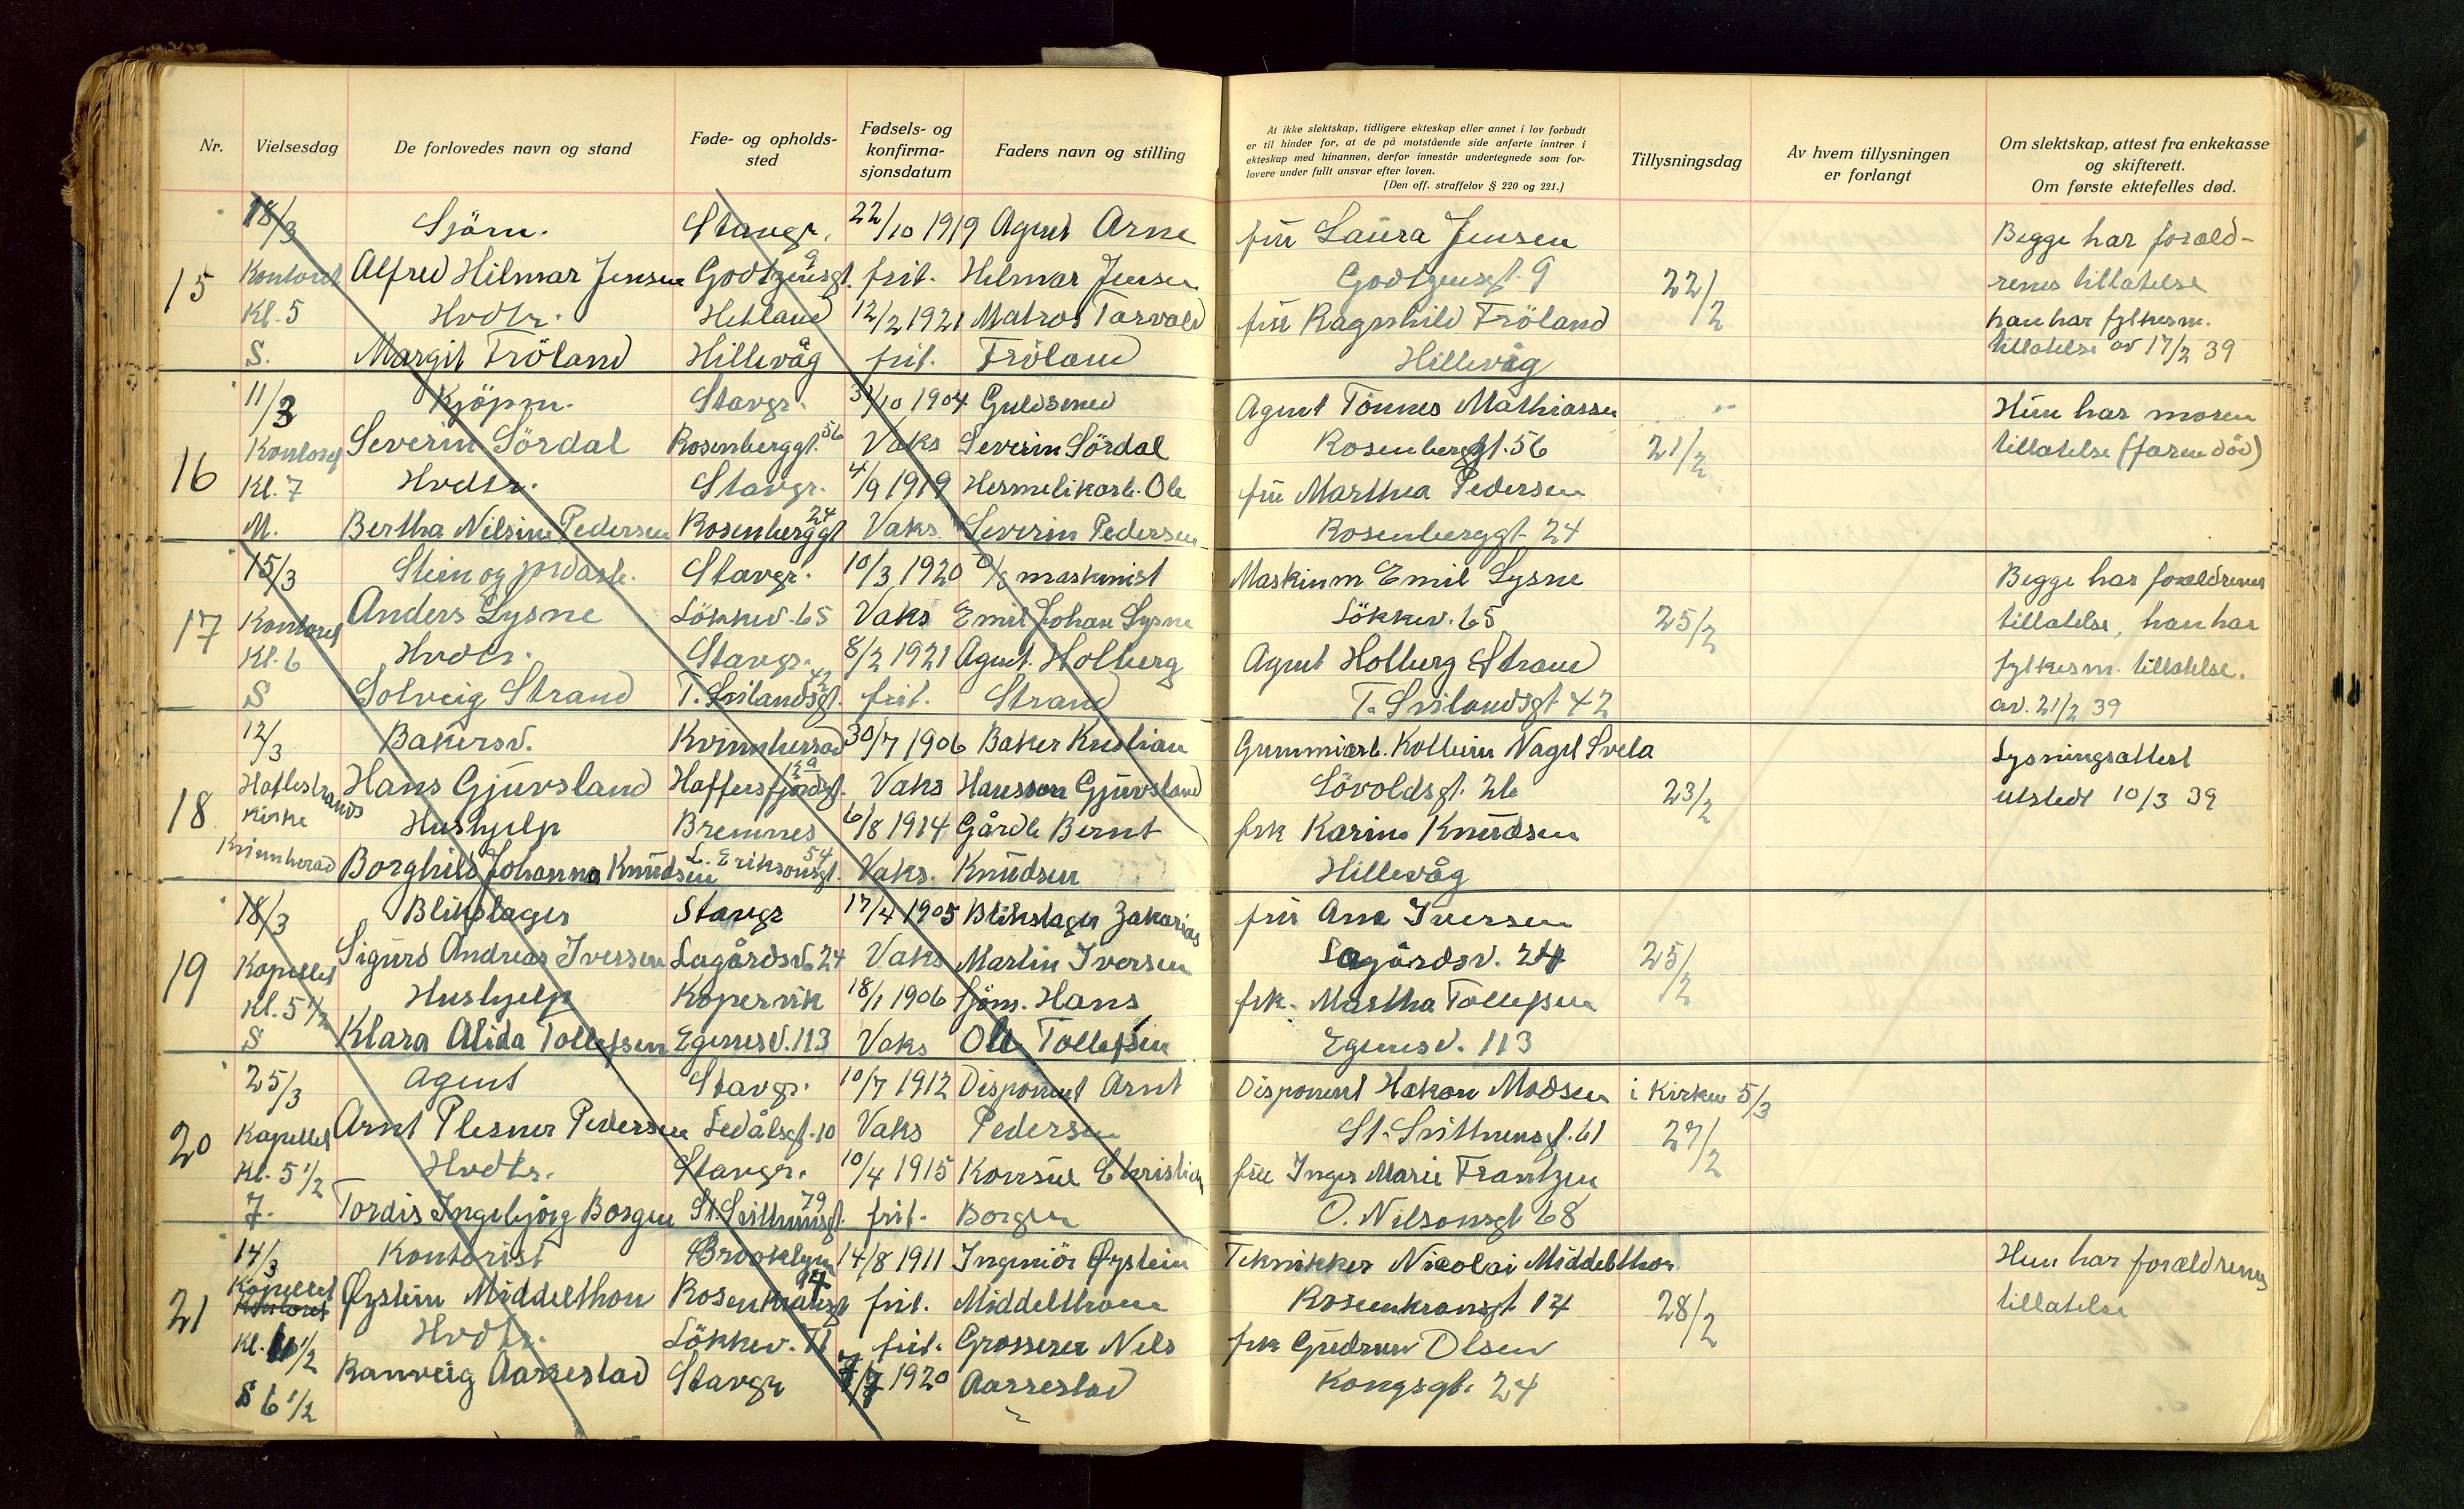 Nr.
Vielsesdag
De forlovedes navn og stand
Føde- og opholds-
sted
Fødsels- og
konfirma-
sjonsdatum
Faders navn og stilling
At ikke slektskap, tidligere ekteskap eller annet i lov forbudt
er til hinder for, at de på motstående side anførte inntrer i
ekteskap med hinannen, derfor innestår undertegnede som for-
lovere under fullt ansvar efter loven.
(Den off. straffelov § 220 og 221.)
Tillysningsdag
Av hvem tillysningen
er forlangt
Om slektskap, attest fra enkekasse
og skifterett.
Om første ektefelles død.
18/3 Sjöm. Stavgr. 22/10 1919 Agent Arne fru Laura Jensen Begge har foræld-
15 Kontoret Alfred Hilmar Jensen Godtzensgt. 9 frit. Helmar Jensen Godtzensgt. 9 22/2 renes tillatelse
Kl. 5 Hvdtr. Hetland 12/2 1921 Matros Torvald fru Ragnhild Fröland han har fylkesm.
S. Margit Fröland Hillevåg frit. Fröland Hillevåg tillatelse av 17/2 39
11/3 Kjöpm. Stavgr. 31/10 1904 Guldsmed Agent Tönnes Mathiassen Hun har moren
16 Kontoret Severin Sördal Rosenberggt. 56 Vaks Severin Sördal Rosenberggt. 56 21/2 tillatelse (faren död)
Kl. 7 Hvdtr. Stavgr. 4/9 1919 Hermetikarb. Ole fru Marthea Pedersen
M. Bertha Nilsine Pedersen Rosenberggt 24 Vaks. Severin Pedersen Rosenberggt. 24
15/3 Stein og jordarb. Stavgr. 10/3 1920 maskinist Maskinm Emil Lysne Begge har forældrenes
17 Kontoret Anders Lysne Lökkev. 65 Vaks Emil Johan Lysne Lökkev. 65 25/2 tillatelse, han har
Kl. 6 Hvdtr. Stavgr. 8/2 1921 Agent. Holberg Agent Holberg Strand fylkesm. tillatelse.
S Solveig Strand T. Svilandsgt. 42 frit. Strand T. Svilandsgt 42 av. 21/2 39
12/3 Bakersv. Kvinnherad 30/7 1906 Baker Kristian Gummiarb. Kolbein Nagel Svela Lysningsattest
18 Hatlestrands Hans Gjuvsland Haffersfjordgt. Vaks Hansson Gjuvsland Lövoldsgt. 26 23/2 utstedt 10/3 39
Kirke Hushjelp Bremnes 6/8 1914 Gårdb Bernt frk Karine Knudsen
Kvinnherad Borghild Johanna Knudsen L. Eriksonsgt. 54 Vaks. Knudsen Hillevåg
18/3 Blikslager Stavgr 17/4 1905 Blikslager Zakarias fru Ane Iversen
19 Kapellet Sigurd Andreas Iversen Lagårdsv. 24 Vaks Martin Iversen Lagårdsv. 24 25/2
Kl. 5 1/2 Hushjelp Kopervik 18/1 1906 Sjöm. Hans frk. Martha Tollefsen
S Klara Alida Tollefsen Egenesv. 113 Vaks Ole Tollefsen Egenesv. 113
25/3 Agent Stavgr. 10/7 1912 Disponent Arnt Disponent Hakon Madsen i Kirken 5/3
20 Kapellet Arnt Plesner Pedersen Ledålsgt. 10 Vaks Pedersen St. Svithunsgt. 61 27/2
Kl. 5 1/2 Hvdtr. Stavgr. 10/4 1915 Konsul Christian fru Inger Marie Frantzen
7. Tordis Ingebjörg Borgen St. Svithunsgt. 79 frit. Borgen O. Nilsonsgt 68
14/3 Kontorist Brooklyn 14/8 1911 Ingeniör Øystein Teknikker Nicolai Middelthon Hun har forældrenes
21 Kapellet Kontoret Øystein Middelthon Rosenkransgt 14 frit. Middelthon Rosenkransgt. 14 28/2 tillatelse
Kl. 1/2 Hvdtr. Lökkev. 71 frit. Grosserer Nels frk Gudrun Olsen
S 6 1/2 Ranveig Aarrestad Stavgr 1920 Aarrestad Kongsgt. 24